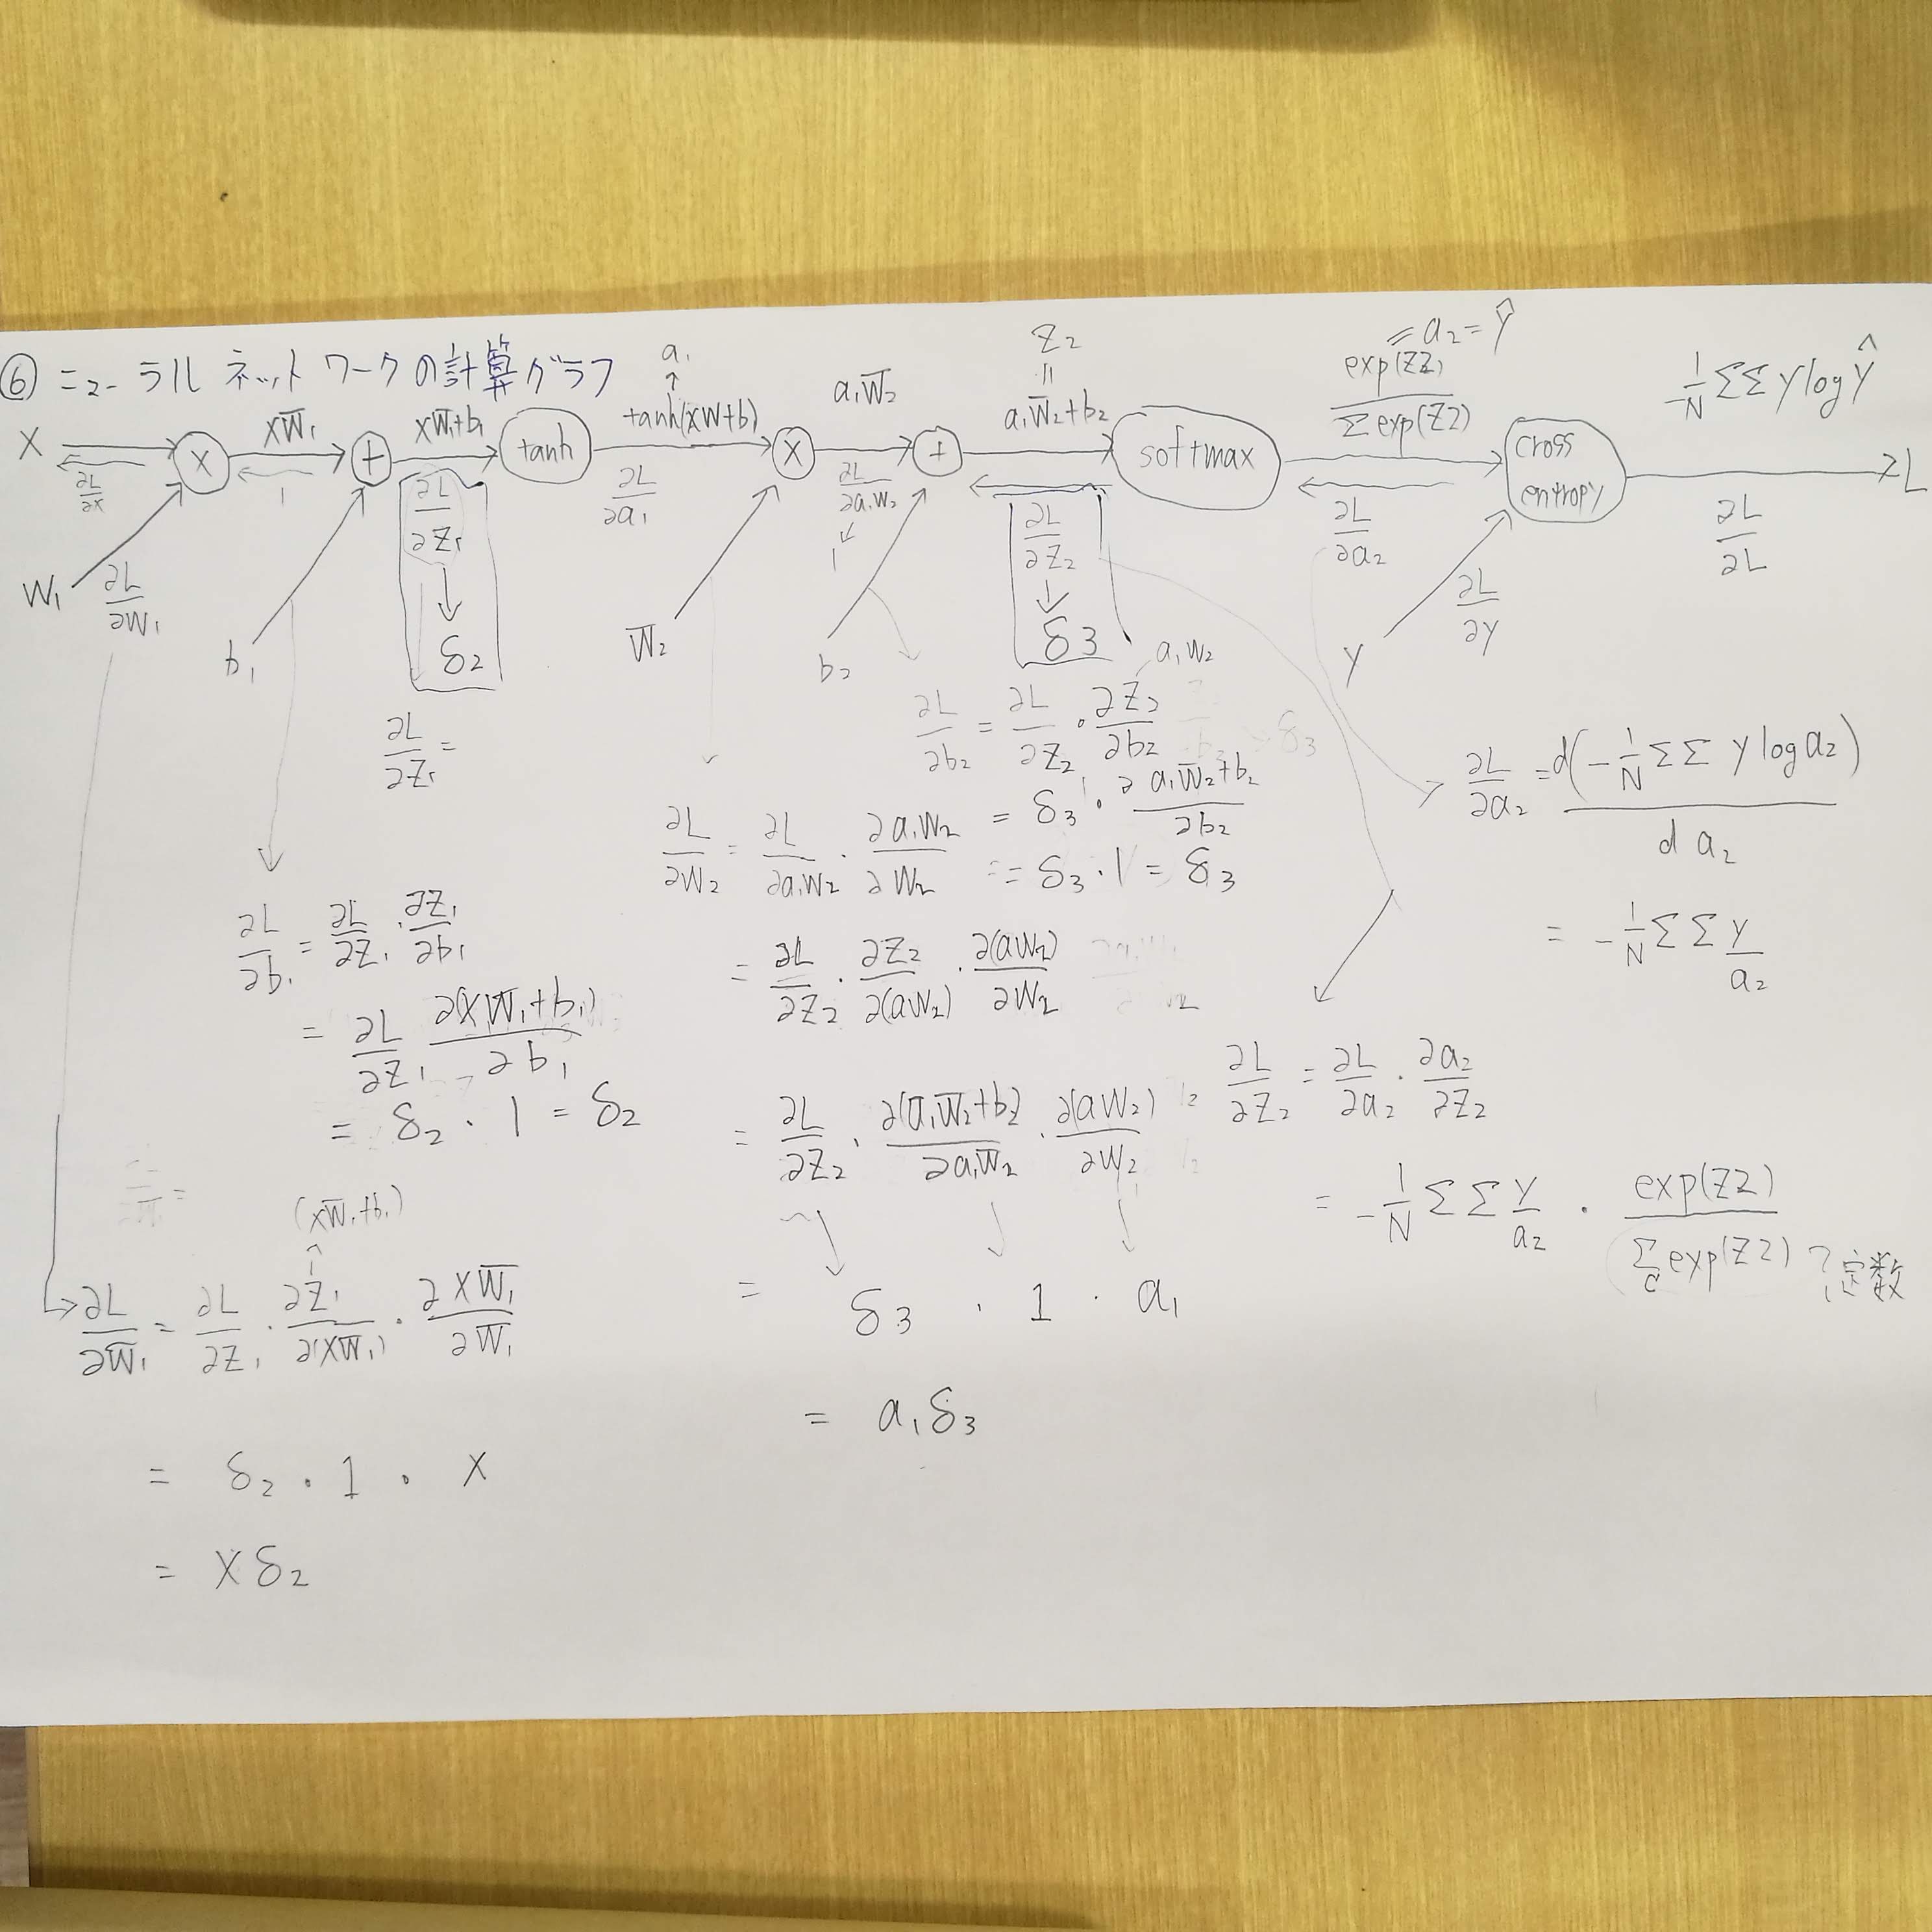 ⑥ ニューラルネットワークの計算グラフ
X
∂L/∂x
W₁
∂L/∂W₁
×
XW₁
1
b₁
+
XW₁+b₁
∂L/∂Z₁
↓
δ₂
tanh
a₁
↑
tanh(XW+b)
∂L/∂a₁
W₂
×
a₁W₂
∂L/∂a₁W₂
1
b₂
+
Z₂
=
a₁W₂+b₂
∂L/∂Z₂
↓
δ3
softmax
= a₂ = Ŷ
exp(Z2)/Σexp(Z2)
∂L/∂a₂
Y
∂L/∂Y
cross
entropy
-1/N ΣΣ Y log Ŷ
∂L/∂L
L
∂L/∂Z₁ =
∂L/∂b₁ = ∂L/∂Z₁ · ∂Z₁/∂b₁
= ∂L/∂Z₁ ∂(XW₁+b₁)/∂b₁
= δ₂ · 1 = δ₂
(XW₁+b₁)
∂L/∂W₁ = ∂L/∂Z₁ · ∂Z₁/∂(XW₁) · ∂XW₁/∂W₁
= δ₂ · 1 · X
= Xδ₂
a₁W₂
∂L/∂b₂ = ∂L/∂Z₂ · ∂Z₂/∂b₂
= δ₃ · ∂a₁W₂+b₂/∂b₂
= δ₃ · 1 = δ₃
∂L/∂W₂ = ∂L/∂a₁W₂ · ∂a₁W₂/∂W₂
= ∂L/∂Z₂ · ∂Z₂/∂(aW₂) · ∂(aW₂)/∂W₂
= ∂L/∂Z₂ · ∂(a₁W₂+b₂)/∂a₁W₂ · ∂(aW₂)/∂W₂
= δ₃ · 1 · a₁
= a₁δ₃
∂L/∂a₂ = d(-1/N ΣΣ Y log a₂)/d a₂
= -1/N ΣΣ Y/a₂
∂L/∂Z₂ = ∂L/∂a₂ · ∂a₂/∂Z₂
= -1/N ΣΣ Y/a₂ · exp(Z2)/Σexp(Z2) 定数